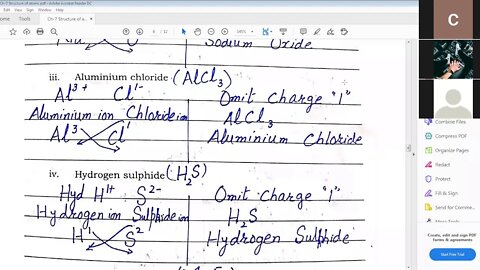 Ch-7 Structure of atoms.pdf - Adobe Acrobat Reader DC
Sodium Oxide
iii. Aluminium chloride (AlCl3)
Al3+ Cl1- Omit Charge "1"
Aluminium ion Chloride ion AlCl3
Al3 Cl1 Aluminium Chloride
iv. Hydrogen sulphide (H2S)
Hyd H1+ S2- Omit Charge "1"
Hydrogen ion Sulphide ion H2S
H1 S2 Hydrogen Sulphide
C
Combine Files
Compress PDF
Organize Pages
Redact
Protect
Fill & Sign
Send for Comme...
Create, edit and sign PDF
forms & agreements
Start Free Trial